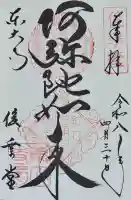 奉拝
令和八年
四月三十日
阿弥陀如来
東大寺
俊乗堂